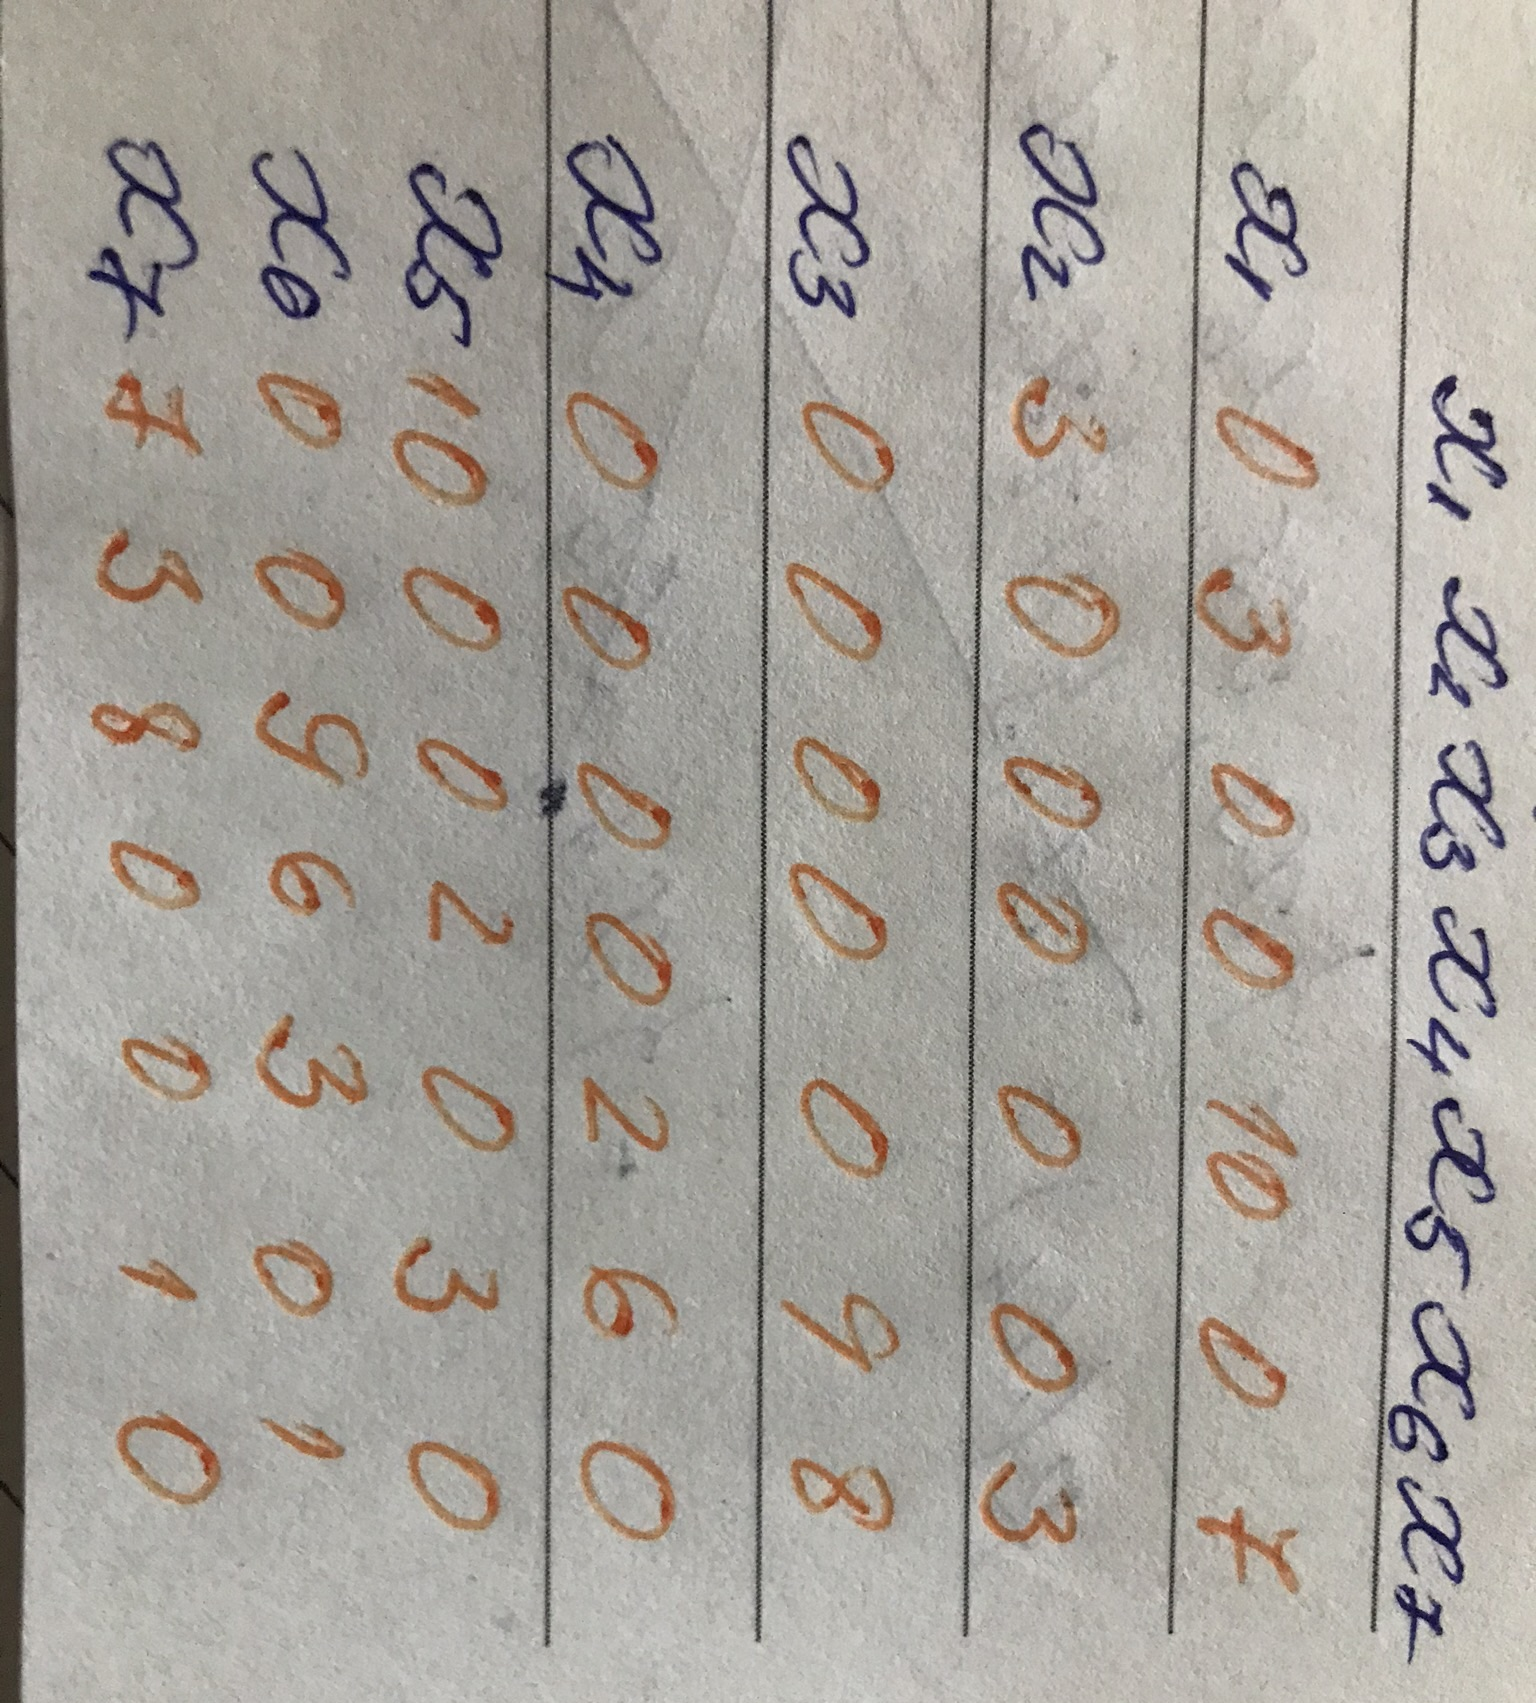 x1 x2 x3 x4 x5 x6 x7
x1 0 3 0 0 10 0 7
x2 3 0 0 0 0 0 3
x3 0 0 0 0 0 9 8
x4 0 0 0 0 2 6 0
x5 10 0 0 2 0 3 0
x6 0 0 9 6 3 0 1
x7 7 3 8 0 0 1 0